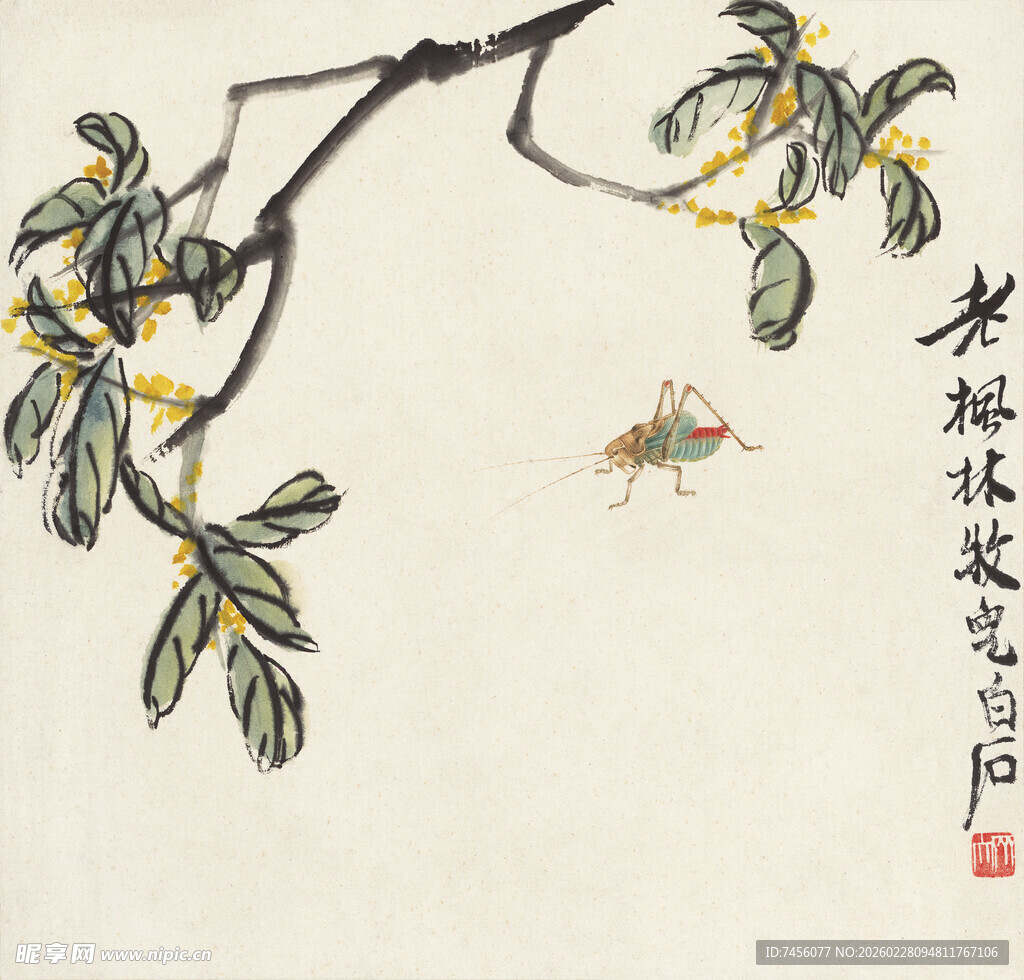 老楓林牧皃白石
昵享网 www.nipic.cn
ID:7456077 NO:20260228094811767106